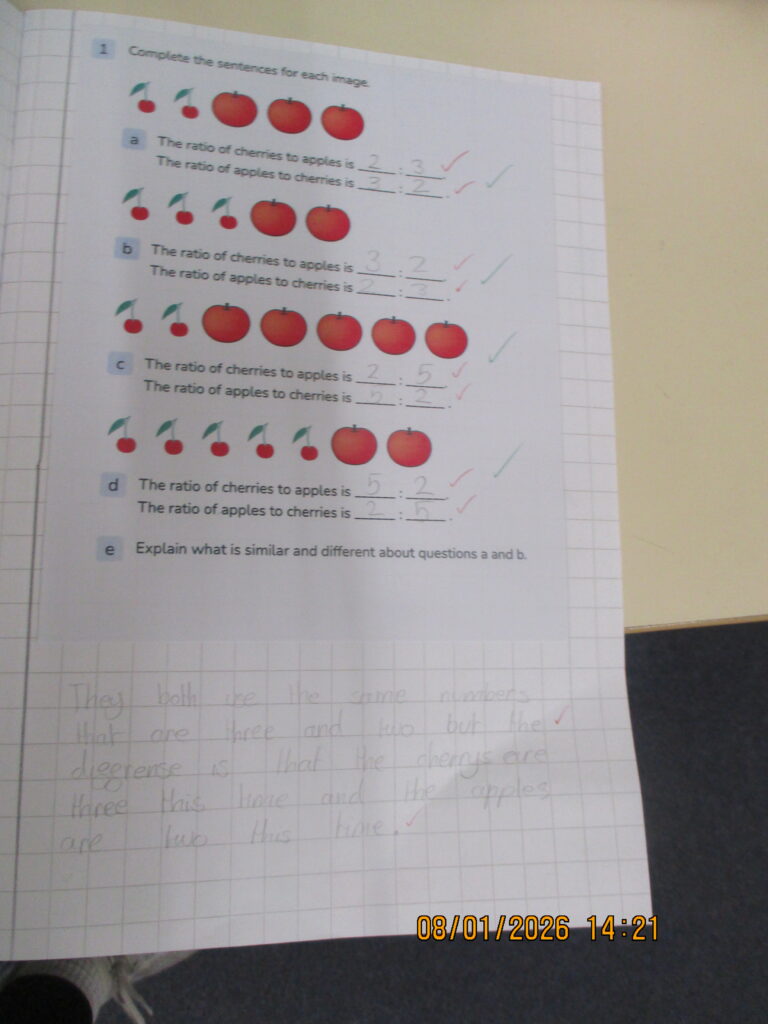 1 Complete the sentences for each image.
a The ratio of cherries to apples is 2 : 3
The ratio of apples to cherries is 3 : 2.
b The ratio of cherries to apples is 3 : 2
The ratio of apples to cherries is 2 : 3.
c The ratio of cherries to apples is 2 : 5
The ratio of apples to cherries is 5 : 2.
d The ratio of cherries to apples is 5 : 2
The ratio of apples to cherries is 2 : 5.
e Explain what is similar and different about questions a and b.
They both the same numbers
that are three and two but the
is that the cherrys are
three this time and the apples
are two this time.
08/01/2026 14:21